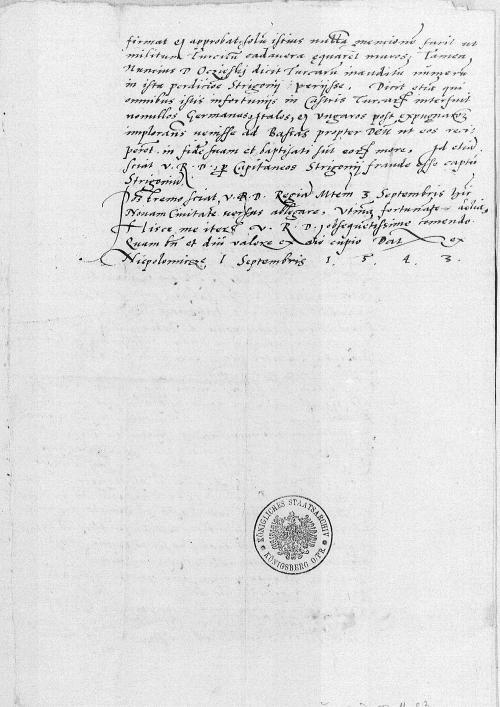 firmat et approbat, solu istius nullā mencionē facit ut
militum Turcicū cadavera equaret muros, Tamen
Nuncius D. Oczieskij dicit Turcarū inauditū numerū
in ista perdicioē Strigonij perijsse. Dicit etiā qui
omnibus istis infortunijs in Castris Turcarū interfuit
nonullos Germanos, Italos, et Ungaros post expugnatōnē
implorans venisse ad Bassas propter Deū ut eos reci
peret in fidē suam et baptisati sūt eorū more, Id etiā
sciat V. R. D. per Capitaneos Strigonij fraude esse captū
Strigoniū
Postremo sciat V. R. D. Regiā Mtem 3 Septembris hinc
Novam Civitatē versus
Hisce me iterū V. R. D. obsequētissimo comendo
Quam tu et diu valere ex cupio Dat ex
Niepolomicze 1 Septembris 1. 5. 4. 3.
KÖNIGLICHES STAATSARCHIV
KÖNIGSBERG O/PR.